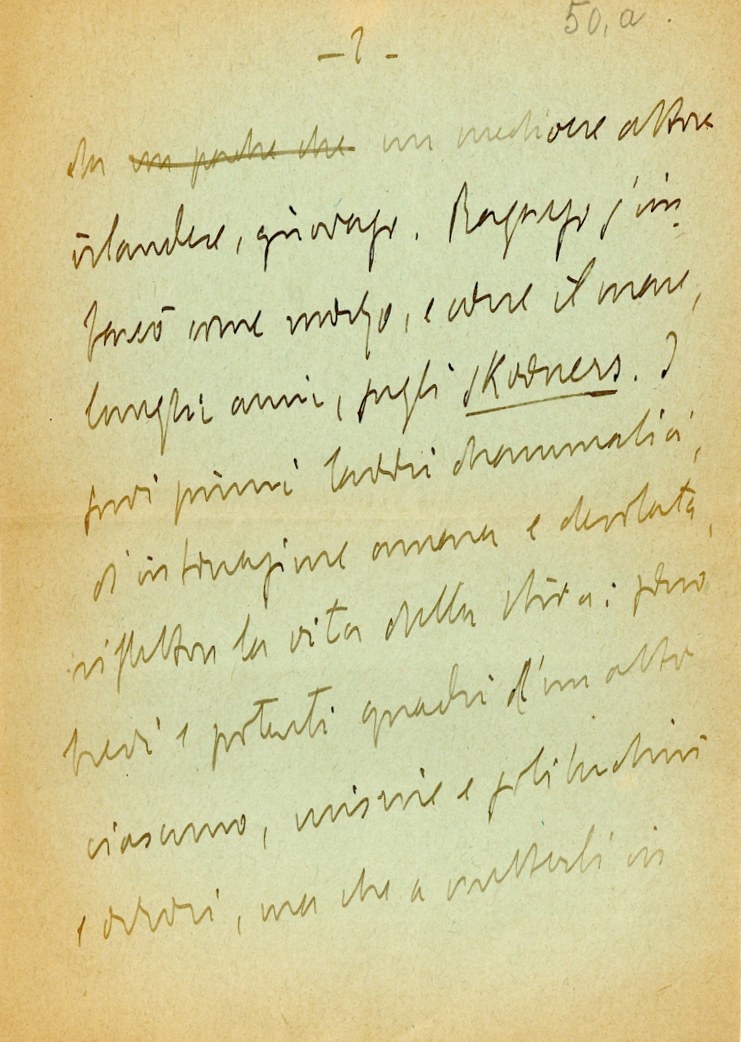 50, a.
– 2 –
da ~~un padre che~~ un mediocre attore
irlandese, girovago. Ragazzo s'im-
barcò come mozzo, e corse il mare,
lunghi anni, sugli skooners. I
suoi primi lavori drammatici,
d'intonazione amara e desolata,
rifletton la vita della stiva: sono
brevi e potenti quadri d'un atto
ciascuno, miserie e solitudini
e orrori, ma che a metterli in